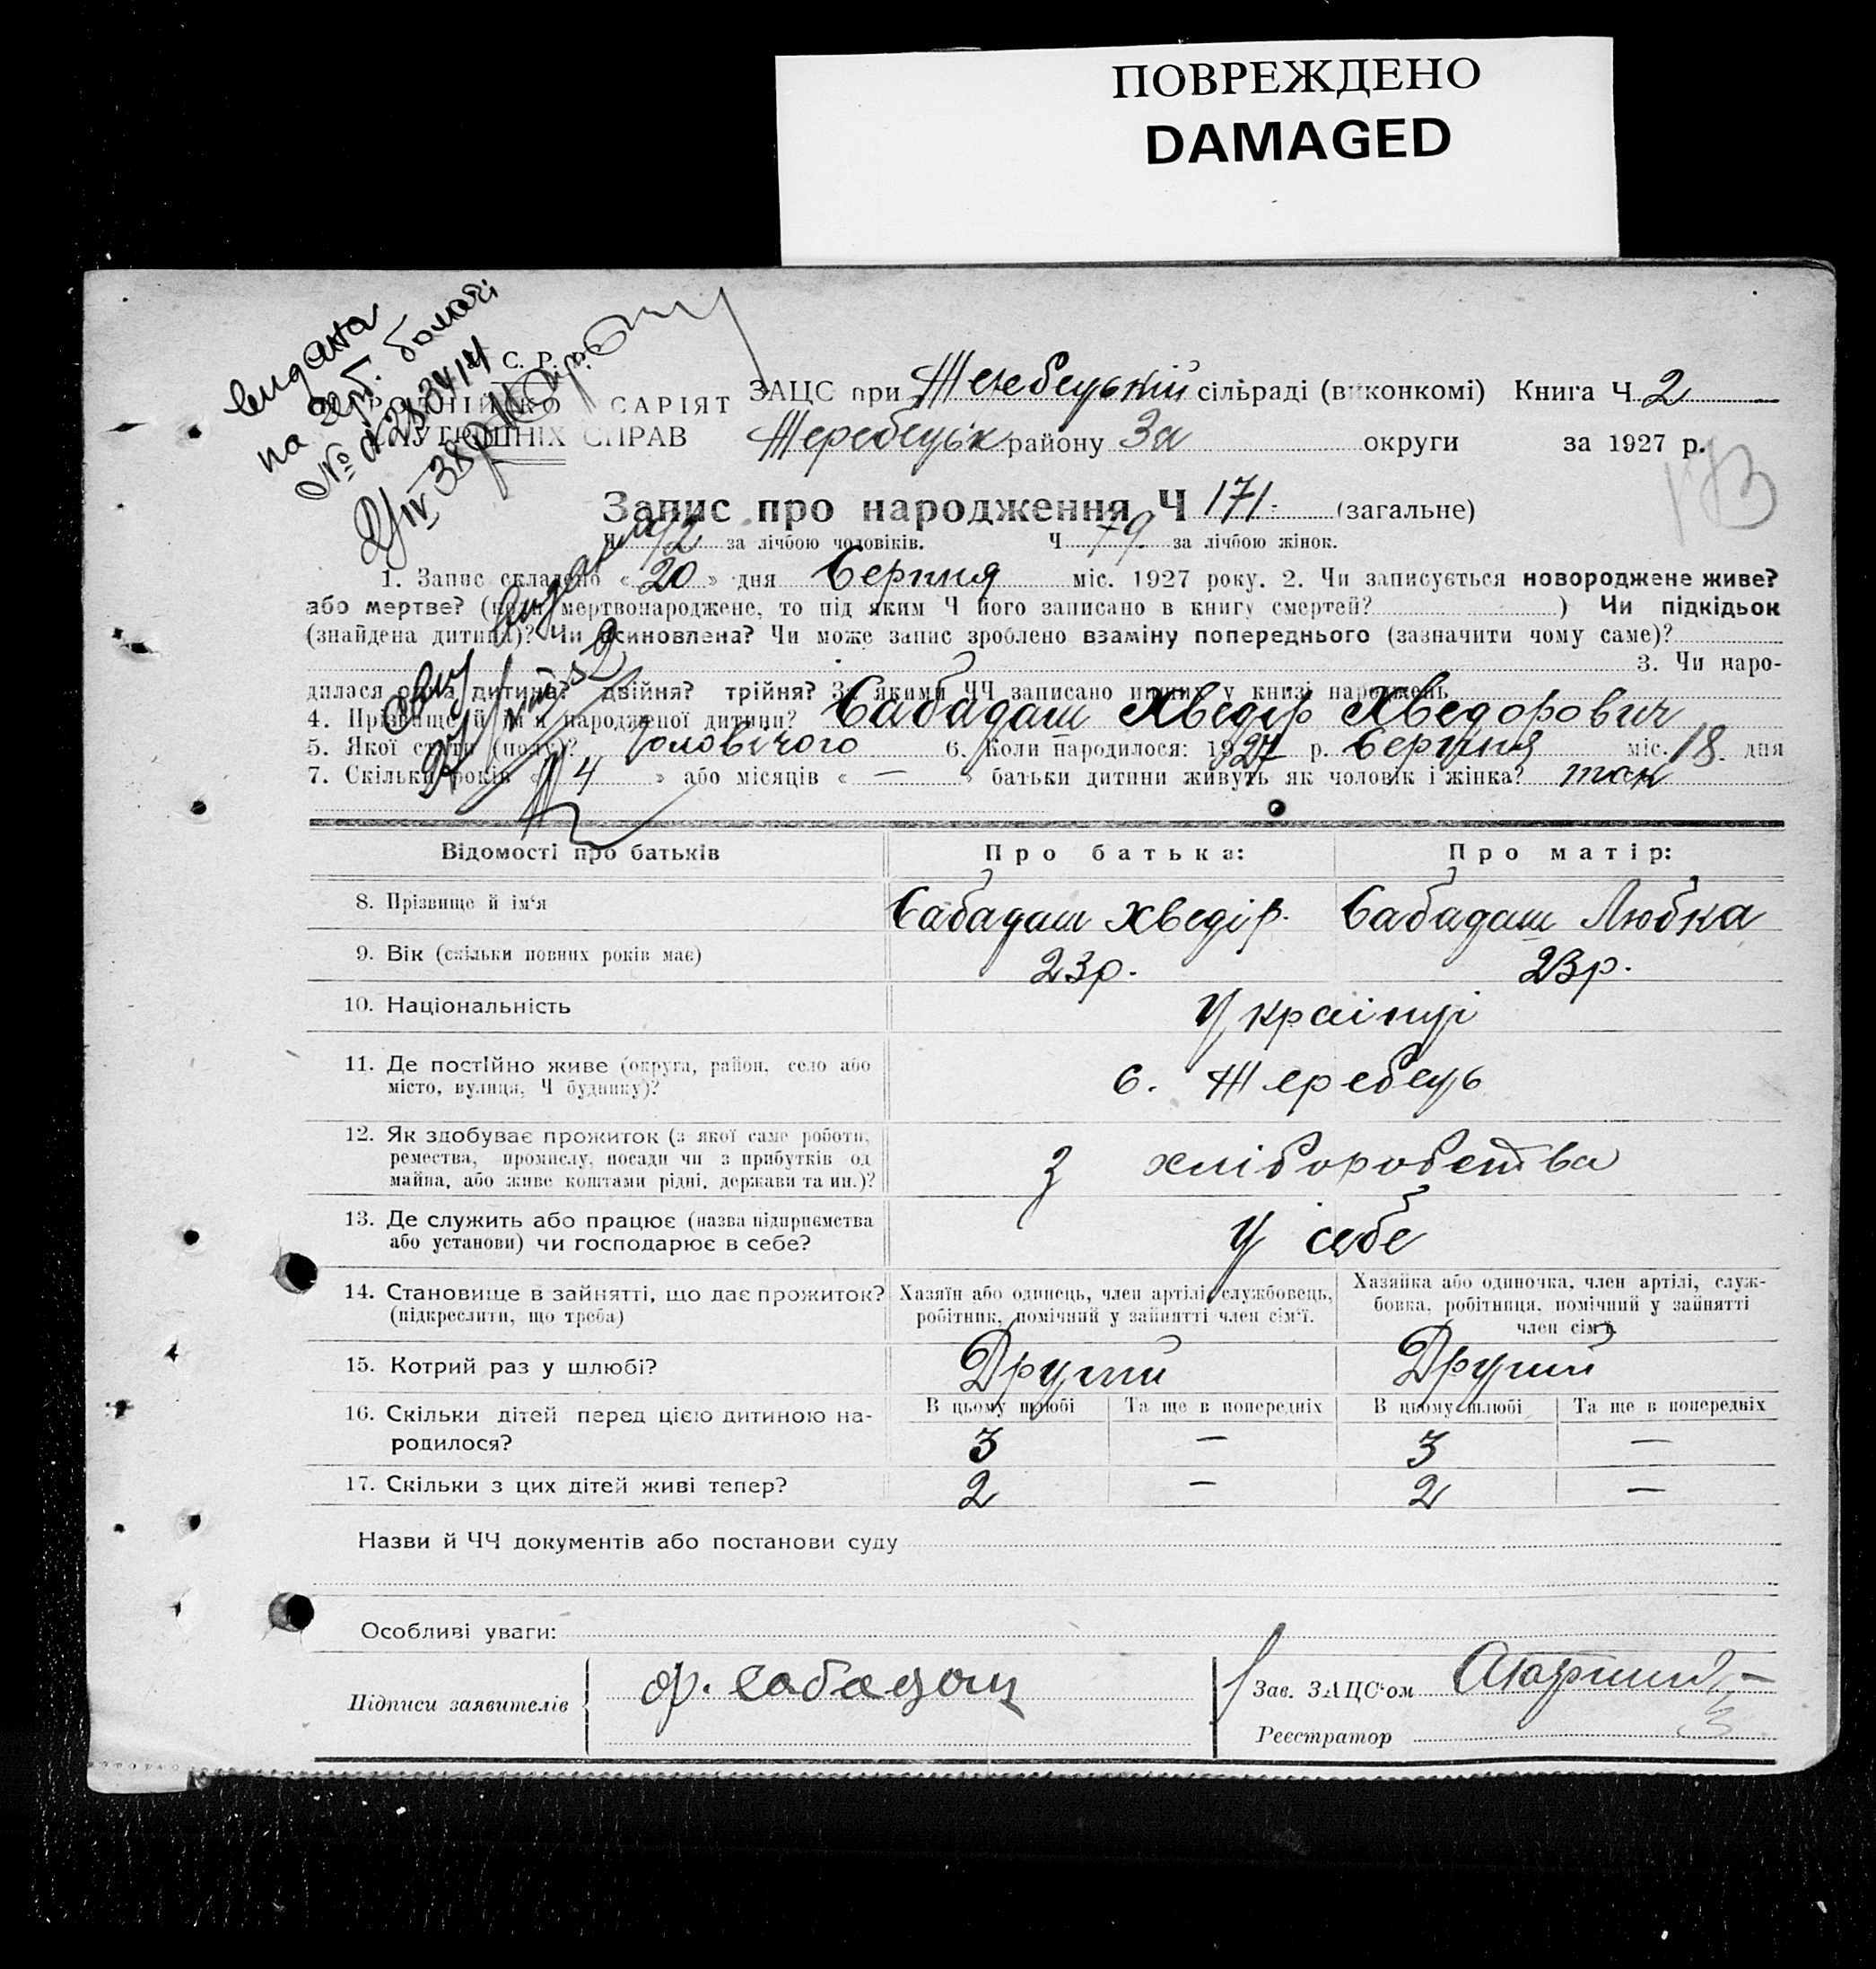 ПОВРЕЖДЕНО
DAMAGED
видана
на герб. бомазі
№
С. Р. Р.
САРІЯТ
СПРАВ
ЗАЦС при Жеребецькій сільраді (виконкомі) Книга Ч 2
Жеребецьк району За округи за 1927 р.
173
Запис про народження Ч 171 (загальне)
Ч 92 за лічбою чоловіків. Ч 79 за лічбою жінок.
1. Запис складено « 20 » дня Серпня міс. 1927 року. 2. Чи записується новороджене живе?
або мертве? (коли мертвонароджене, то під яким Ч його записано в книгу смертей? ) Чи підкідьок
(знайдена дитина)? Чи всиновлена? Чи може запис зроблено взаміну попереднього (зазначити чому саме)?
3. Чи наро-
дилася одна дитина? двійня? трійня? За якими ЧЧ записано инших у книзі народжень
4. Прізвище й ім'я народженої дитини? Сабадаш Хведір Хведорович
5. Якої статі (полу)? Чоловічого 6. Коли народилося: 1927 р. Серпня міс. 18 дня
7. Скільки років « 4 » або місяців « — » батьки дитини живуть як чоловік і жінка? так
Відомості про батьків Про батька: Про матір:
8. Прізвище й ім'я Сабадаш Хведір. Сабадаш Любка
9. Вік (скільки повних років має) 23р. 23р.
10. Національність Українці
11. Де постійно живе (округа, район, село або
місто, вулиця, Ч будинку)? с. Жеребець
12. Як здобуває прожиток (з якої саме роботи,
ремества, промислу, посади чи з прибутків од
майна, або живе коштами рідні, держави та ин.)? З хліборобства
13. Де служить або працює (назва підприємства
або установи) чи господарює в себе? У себе
14. Становище в зайнятті, що дає прожиток? Хазяїн або одинець, член артілі, службовець, Хазяйка або одиночка, член артілі, служ-
(підкреслити, що треба) робітник, помічний у зайнятті член сім'ї. бовка, робітниця, помічний у зайнятті
член сім'ї.
15. Котрий раз у шлюбі? Другий Другий
16. Скільки дітей перед цією дитиною на- В цьому шлюбі Та ще в попередніх В цьому шлюбі Та ще в попередніх
родилося? 3 — 3 —
17. Скільки з цих дітей живі тепер? 2 — 2 —
Назви й ЧЧ документів або постанови суду
Особливі уваги:
Підписи заявителів ф. Сабадаш Зав. ЗАЦС'ом
Реєстратор